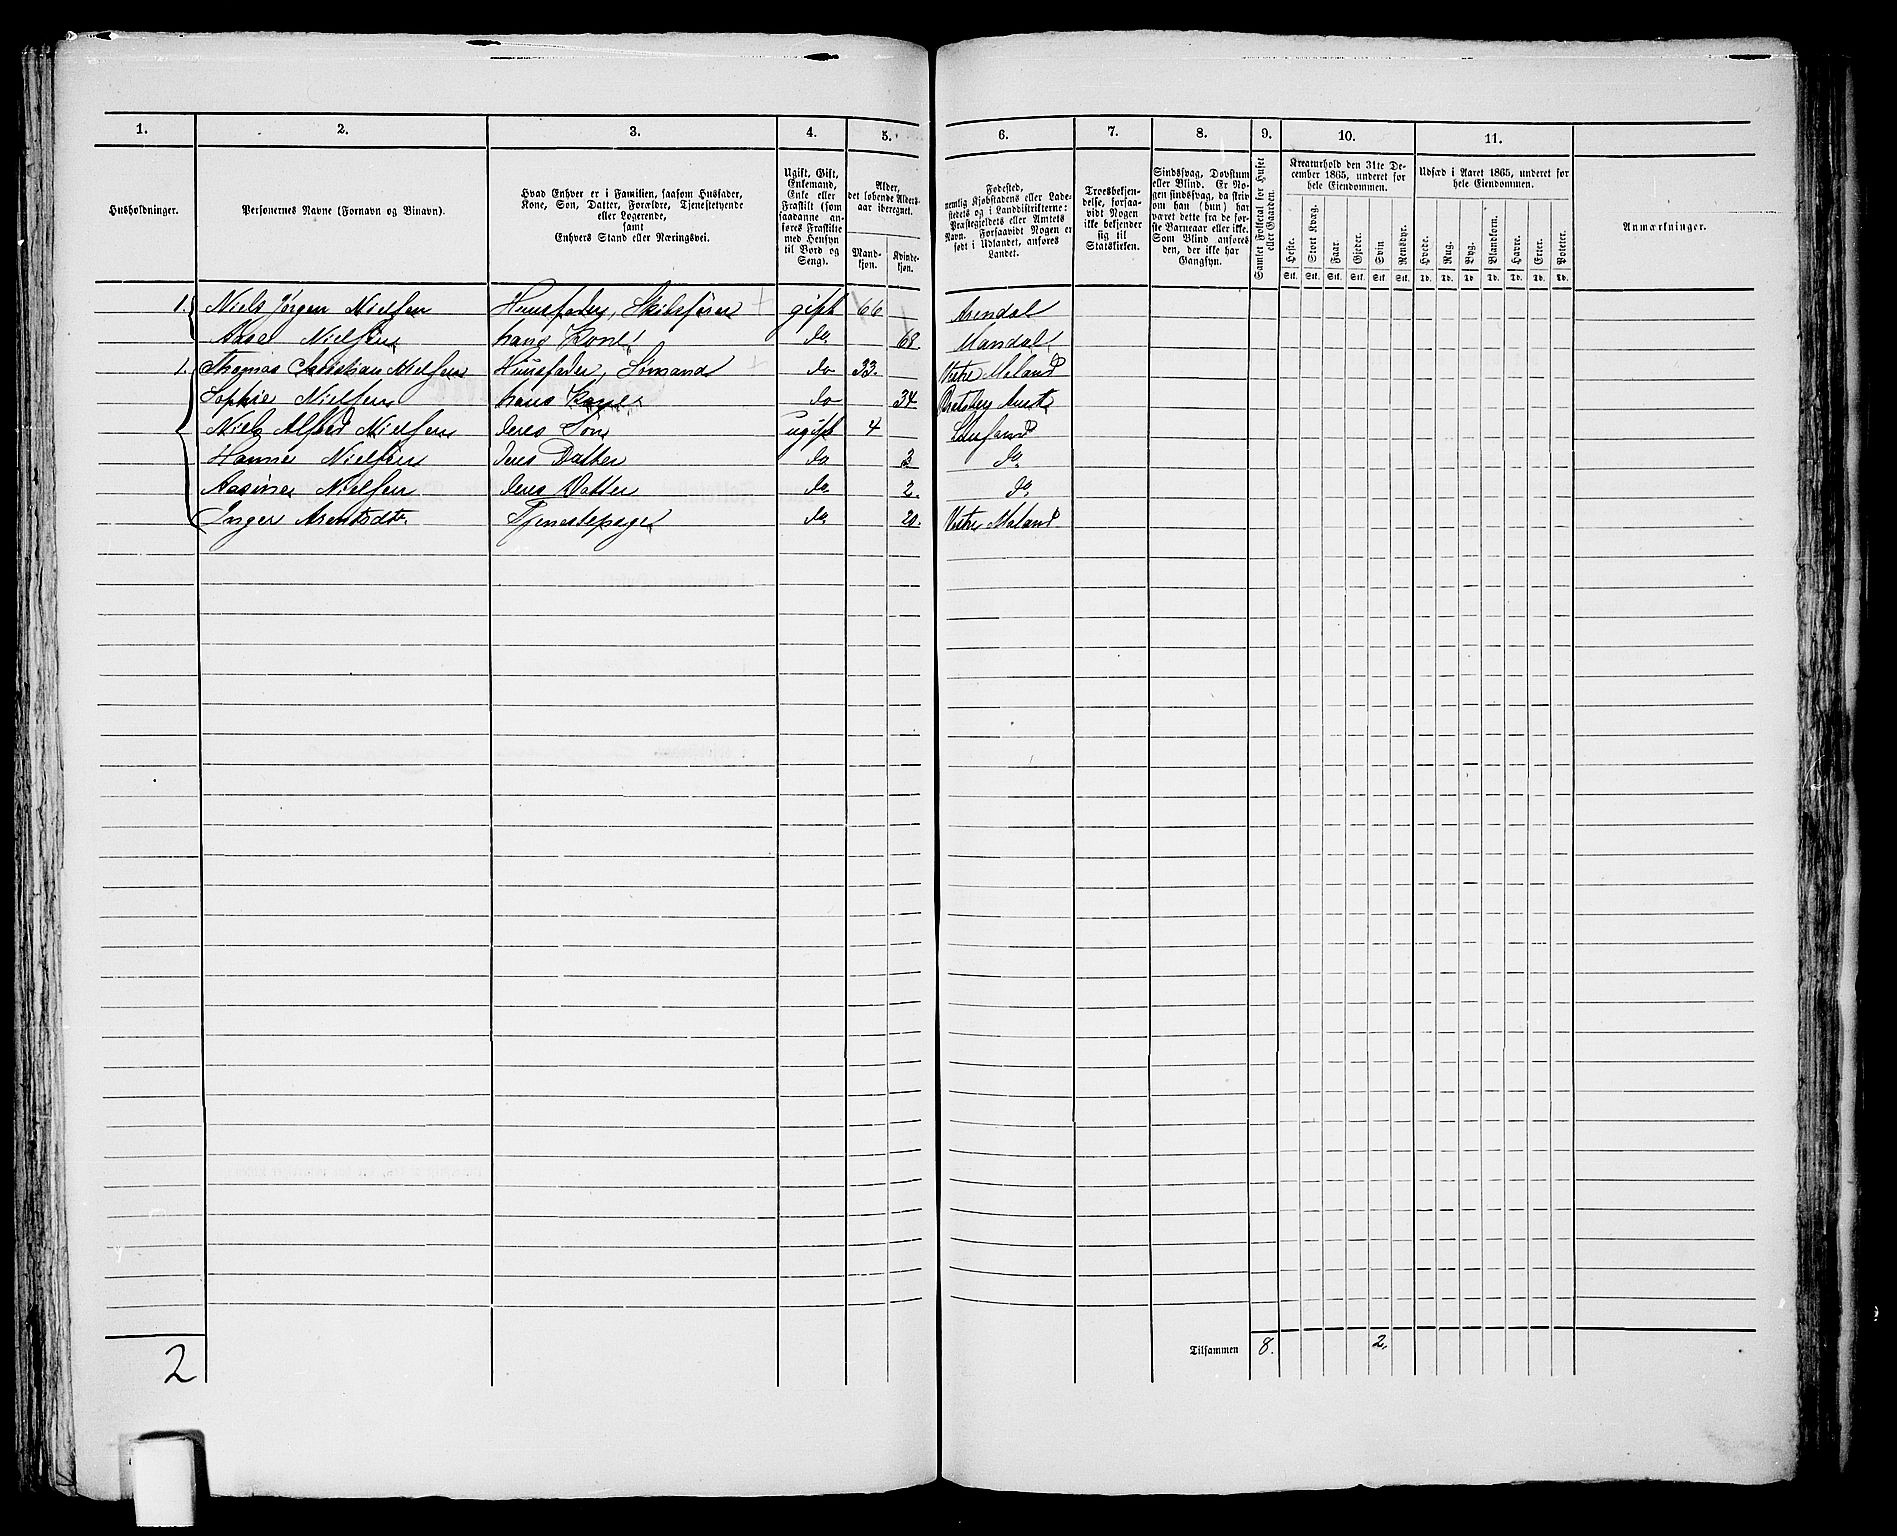 1. 2. 3. 4. 5. 6. 7. 8. 9. 10. 11.
Husholdninger.
Personernes Navne (Fornavn og Binavn).
Hvad Enhver er i Familien, saasom Husfader,
Kone, Søn, Datter, Forældre, Tjenestetyende
eller Logerende,
samt
Enhvers Stand eller Næringsvei.
Ugift, Gift,
Enkemand,
Enke eller
Fraskilt (som
saadanne an-
føres Fraskilte
med Hensyn
til Bord og
Seng).
Alder,
det løbende Alders-
aar iberegnet.
Mand-
kjøn.
Kvinde-
kjøn.
Fødested,
nemlig Kjøbstadens eller Lade-
stedets og i Landdistrikterne:
Præstegjeldets eller Amtets
Navn. Forsaavidt Nogen er
født i Udlandet, anføres
Landet.
Troesbekjen-
delse, forsaa-
vidt Nogen
ikke bekjender
sig til
Statskirken.
Sindssvag, Døvstum
eller Blind. Er No-
gen sindssvag, da skriv
om han (hun) har
været dette fra de før-
ste Barneaar eller ikke.
Som Blind anføres
den, der ikke har
Gangsyn.
Samlet Folketal for Huset
eller Gaarden.
Kreaturhold den 31te De-
cember 1865, underet for
hele Eiendommen.
Heste. Stort Kvæg. Faar. Gjeder. Svin Rensdyr.
Stk. Stk. Stk. Stk. Stk. Stk.
Udsæd i Aaret 1865, underet for
hele Eiendommen.
Hvede. Rug. Byg. Blandkorn. Havre. Erter. Poteter.
Td. Td. Td. Td. Td. Td. Td.
Anmærkninger.
1. Niels Jørgen Nielsen Huusfader, gift 66 Arendal
Aase Nielsen hans Kone do 68. Mandal
1. Thomas Christian Nielsen Huusfader, Sømand do 33. Vestre Moland
Sophie Nielsen hans Kone do 34 Bratsberg Amt
Niels Alfred Nielsen deres Søn ugift 4
Hanne Nielsen deres Datter do 3 do
Aasine Nielsen deres Datter do 2. do
Inger Arentsdtr Tjenestepige do 20. Vestre Moland
Tilsammen 8. 2.
2